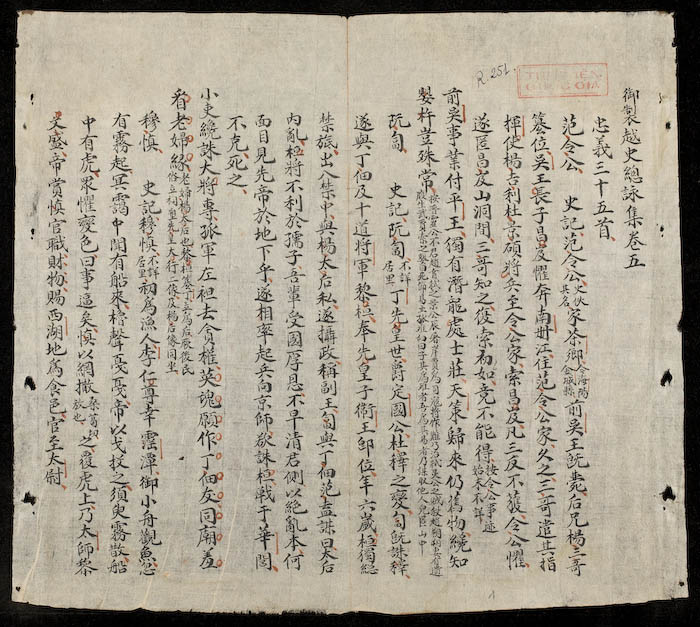 R.251
THƯ VIỆN
QUỐC GIA
御製越史總詠集卷五
忠義三十五首
范令公 史記范令公史佚其名家茶鄉今海陽金城縣前吳王既薨后兄楊三哥
篡位吳王長子昌岌懼奔南册江往范令公家久之三哥遣其指
揮使楊吉利杜景碩將兵至令公家索昌岌凡三反不獲令公懼
遂匿昌岌山洞間三哥知之復索初如竟不能得按令公事迹始末不詳
前吳事業付平王獨有潛龍處士莊天策歸來仍舊物纔知
嬰杵豈殊常
阮匐 史記阮匐不詳居里丁先皇世爵定國公杜釋之變匐既誅釋
遂與丁佃及十道將軍黎桓奉先皇子衛王即位年六歲桓獨總
禁旅出入禁中與楊太后私遂攝政稱副王匐與丁佃范盍謀曰太后
內亂桓將不利於孺子吾輩受國厚恩不早清君側以絕亂本何
面目見先帝於地下乎遂相率起兵向京師欲誅桓戰于華閭
不克死之
小史纔誅大將專孤軍左袒去貪權英魂願作丁佃友同廟羞
看老婦緣
穆慎 史記穆慎不詳居里初為漁人李仁尊幸霪潭御小舟觀魚忽
有霧起冥靄中聞有船來櫓聲戞戞帝以戈投之須臾霧散船
中有虎眾懼變色曰事逼矣慎以網撒桑葛切放也之覆虎上乃太師黎
文盛帝賞慎官職財物賜西湖地為食邑官至太尉
1